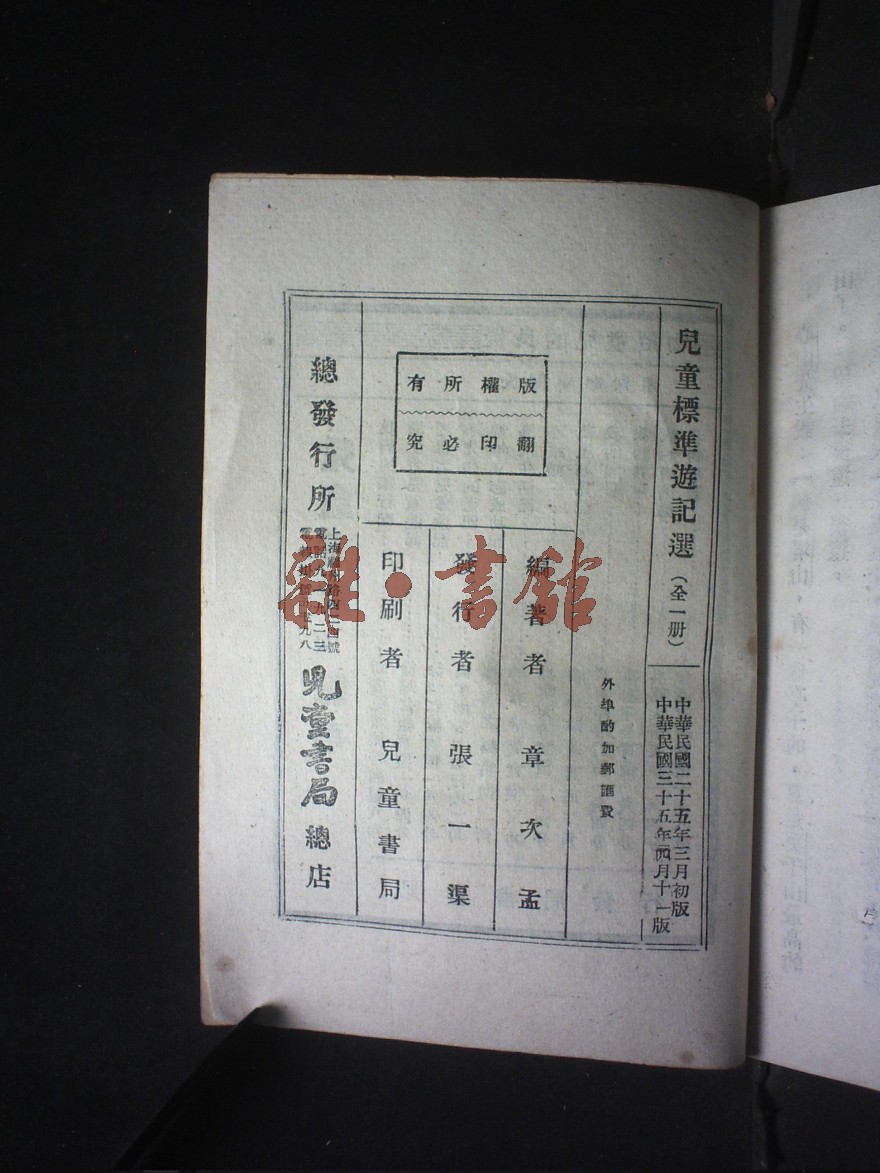 兒童標準遊記選（全一册）
中華民國二十五年三月初版
中華民國三十五年四月十一版
外埠酌加郵匯費
版權所有
翻印必究
編著者 章次孟
發行者 張一渠
印刷者 兒童書局
總發行所
上海
號
電
二三
九八
兒童書局總店
雜·書館